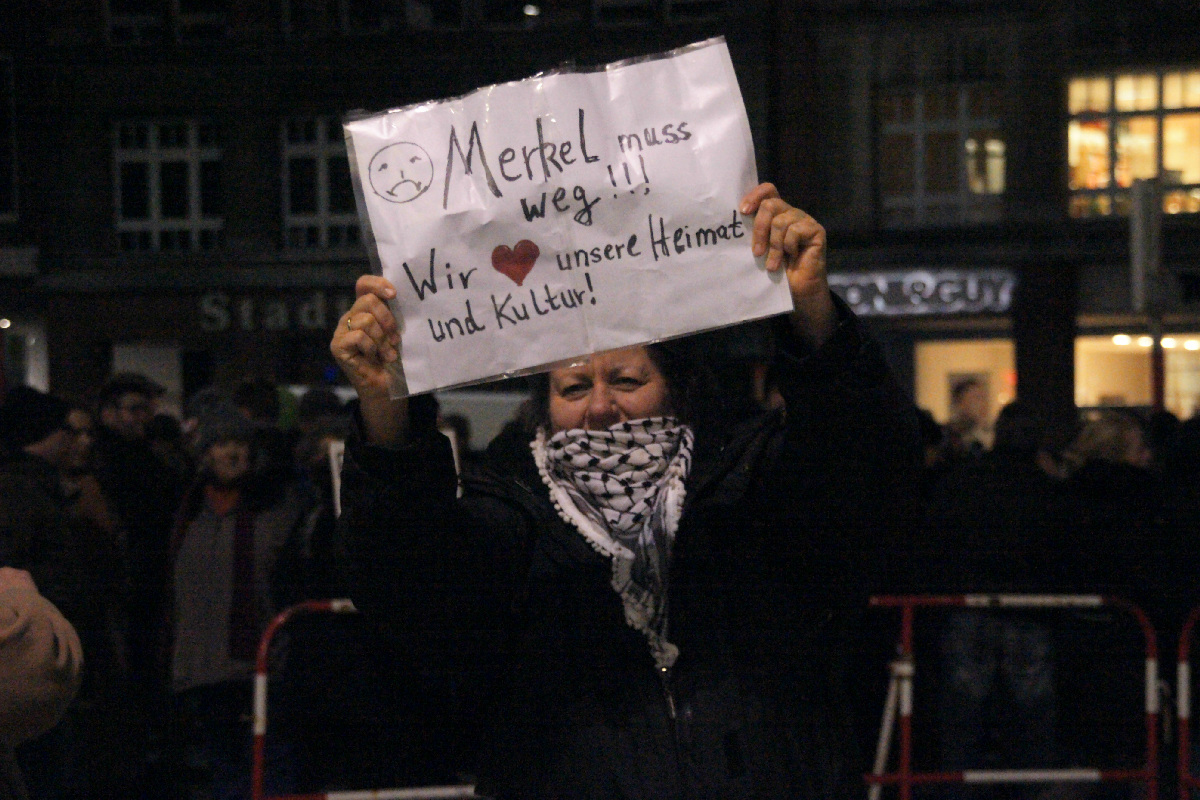 Merkel muss
weg!!!
Wir ❤ unsere Heimat
und Kultur!
Stad
ON&GUY